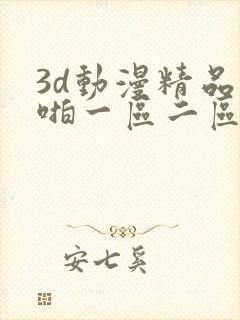 3d動漫精品
啪一區二區
安七奚